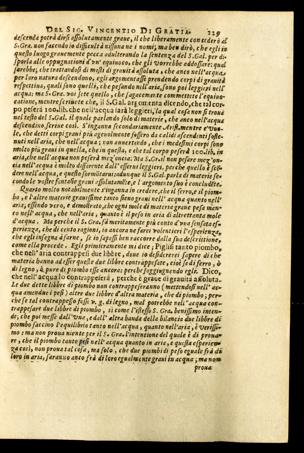 DEL SIG. VINCENTIO DI GRATIA. 229
descenda potrà dirsi assolutamente grave, il che liberamente concederò al
S. Gra. non facendo io difficultà nissuna ne i nomi, ma ben dirò, che egli in
questo luogo gravemente pecca adulterando la sentenza del S. Gal. per di-
sporla alle oppugnazioni
farebbe, che trattandosi di mossi di gravità assoluta, che anco nell'acqua,
per loro natura descendono, egli argomentasse prendendo corpi di gravità
respettiva, quali son quelli, che pesando nell'aria, son più leggieri nell'
acqua; ma S. Gra. vo
razione, mentre scrive che, il S. Gal. argomenta dicendo, che tal cor-
po peserà 100. lib. che nell'acqua sarà leggieri, la qual cosa non si trova
nel testo del S. Gal. il quale parlando solo di materie, che anco nell'acqua
descendino scrive così. S'inganna secondariamente Arist. mentre e' vuo-
le, che detti corpi
nuti nell'aria, che nell'acqua; non avvertendo, che i medesimi corpi sono
molto più gravi in quella, che in questa, e che tal corpo peserà 100. lib. in
aria, che nell'acqua non peserà mez'oncia. Ma S. Gra. il non pesare mez'on-
cia nell'acqua è molto differente dall'esservi leggieri, perche quello è scen-
dere nell'acqua, e questo sormontarvi; adunque il S. Gal. parla di materie se-
condo le vostre fantasie gravi assolutamente, e l'argomento suo è concludente.
Quarto molto notabilmente s'inganna in credere, che il ferro, e il piom-
bo, e l'altre materie gravissime tanto sieno gravi nell'acqua quanto nell'
aria, essendo vero, e dimostrato, che ogni mole di materie grave pesa men-
no nell'acqua, che nell'aria, quanto è il peso in aria di altrettanta mole
d'acqua. Ma perche il S. Gra. fa meritamente più conto d'una sensata es-
perienza, che di cento ragioni, io ancora ne farei volentieri l'esperienze,
che egli insegna
come ella procede. Egli primieramente ne dire; Piglisi tanto piombo,
che nell'aria contrappesi due libre, dove io desidererei sapere di che
materia hanno ad esser queste due libre contrappesate, cioè se di ferro, ò
di legno, ò pur di piombo esse ancora: perche soggiugnendo egli. Dico,
che nell'acqua contrappeserà, perche è grave di gravità assoluta.
Le due dette libre di piombo non contrappeseranno (mettendosi nell'ac-
qua amendue i pesi) altre due libre d'altra materia, che di piombo; per-
che se tal contrappeso fusse v. g. di legno, mal potrebbe nell'acqua con-
trappesare due libre di piombo, si come l'istesso S. Gra. benissimo inten-
de; che poi messe dall'una, e dall'altra banda della bilancia due libre di
piombo faccino l'equilibrio tanto nell'acqua, quanto nell'aria, è verissi-
mo: ma non prova niente per il S. Gra. l'intenzione del quale è di prova-
re, che il piombo tanto pesi nell'acqua quanto in aria, e questa esperien-
za così, non prova tal cosa, ma solo, che due piombi di peso eguale frà di
loro in aria, saranno anco frà di loro egualmente gravi in acqua; ma non
prova